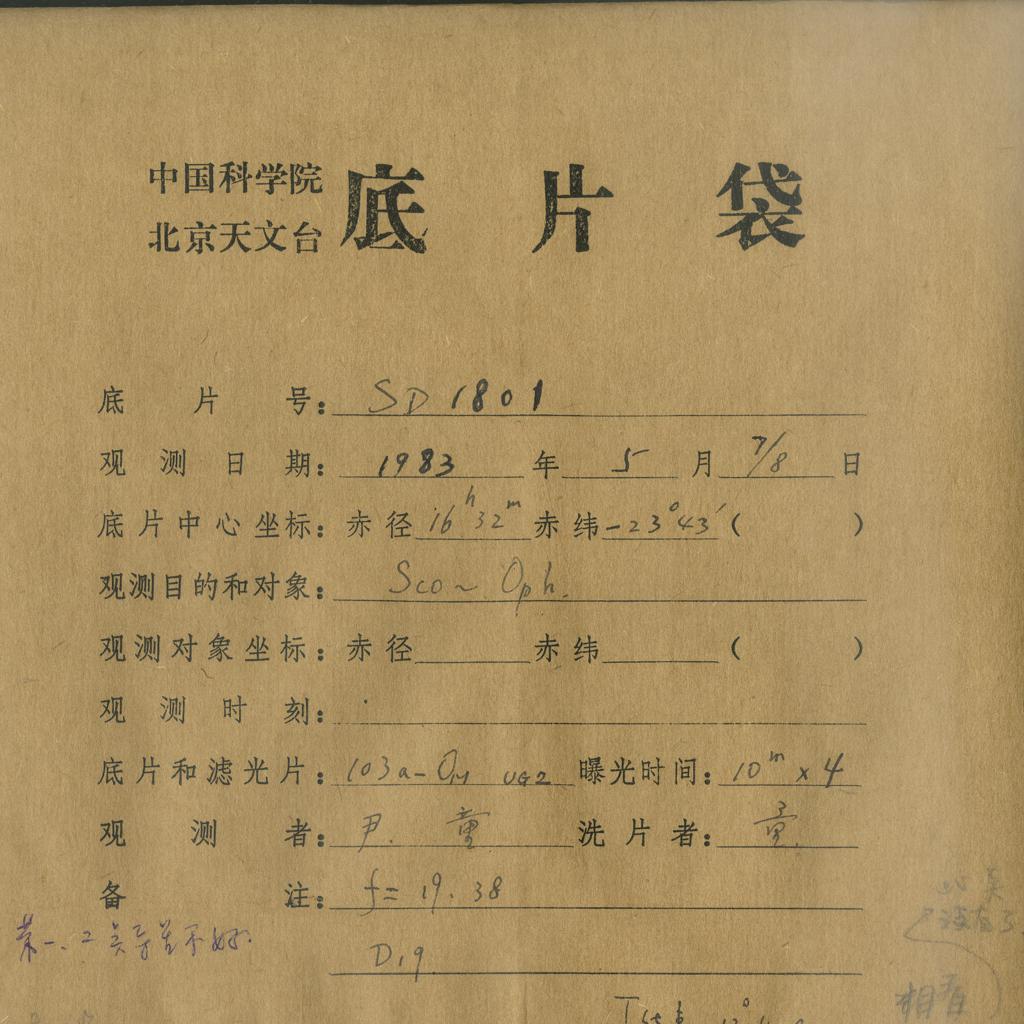 中国科学院
北京天文台
底片袋
底片号: SD 1801
观测日期: 1983 年 5 月 7/8 日
底片中心坐标: 赤径 16h 32m 赤纬 -23°43′ ( )
观测目的和对象: Sco ~ Oph.
观测对象坐标: 赤径 赤纬 ( )
观测时刻:
底片和滤光片: 103a-O UG2 曝光时间: 10m x 4
观测者: 尹. 童 洗片者: 童
备注: f = 19.38
第一、二 不好.
D19